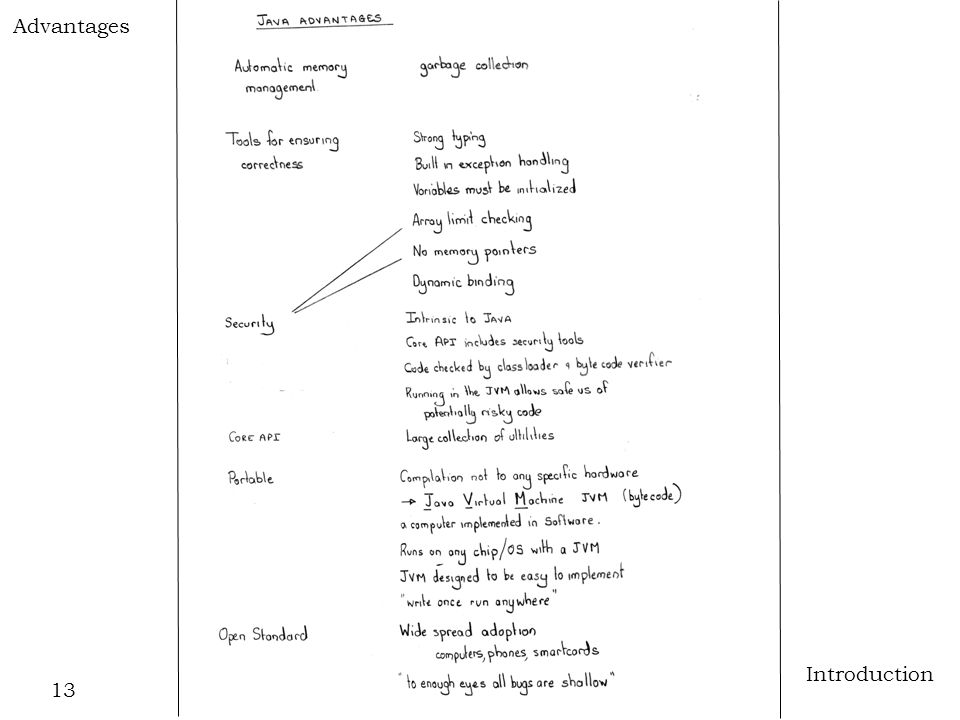 Advantages
JAVA ADVANTAGES
Automatic memory garbage collection
management.
Tools for ensuring Strong typing
correctness Built in exception handling
Variables must be initialized
Array limit checking
No memory pointers
Dynamic binding
Security Intrinsic to JAVA
Core API includes security tools
Code checked by class loader & byte code verifier
Running in the JVM allows safe us of
potentially risky code
CORE API Large collection of ultilities
Portable Compilation not to any specific hardware
→ Java Virtual Machine JVM (bytecode)
a computer implemented in Software.
Runs on any chip/OS with a JVM
JVM designed to be easy to implement
"write once run anywhere"
Open Standard Wide spread adoption
computers, phones, smartcards
"to enough eyes all bugs are shallow"
Introduction
13